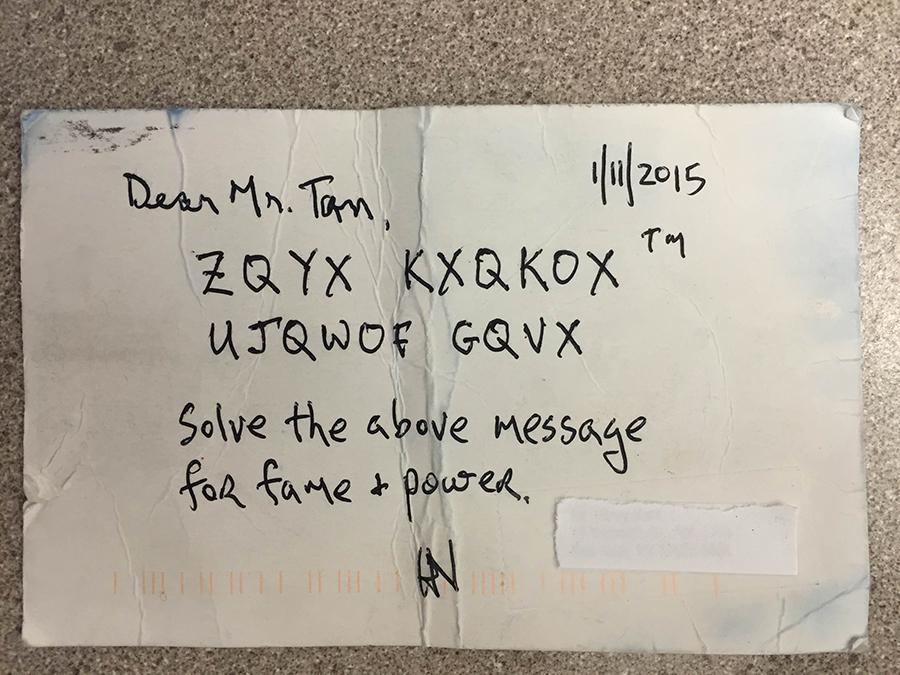 Dear Mr. Tan,
1/11/2015
ZQYX KXQKOX TM
UJQWOF GQVX
Solve the above message
for fame + power.
HN